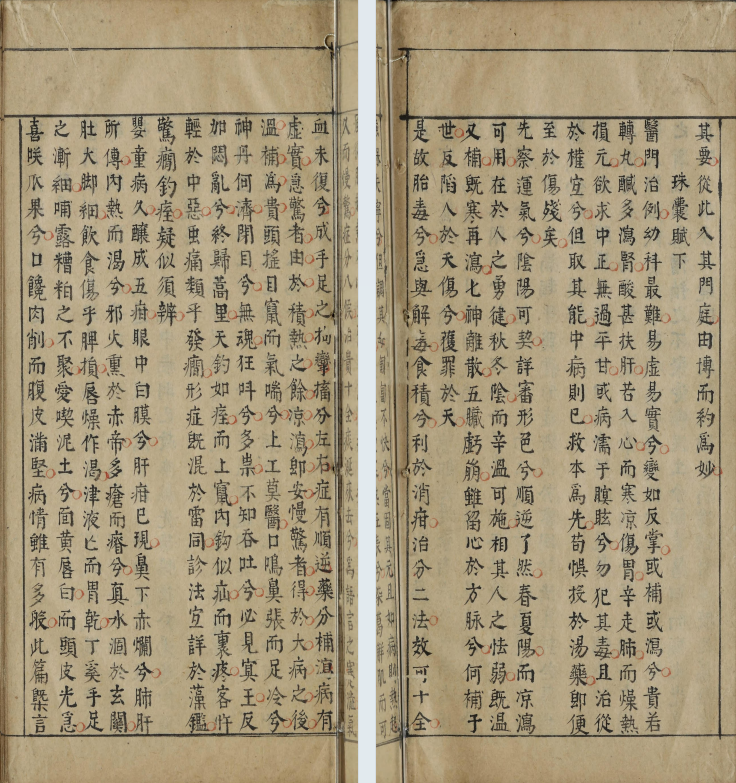 其要從此入其門庭由博而約爲妙
珠囊賦下
醫門治例幼科最難易虛易實兮變如反掌或補或瀉兮貴若
轉丸醎多瀉腎酸甚扶肝苦入心而寒凉傷胃辛走肺而燥熱
損元欲求中正無過平甘或病濡于瞑眩兮勿犯其毒且治從
於權宜兮但取其能中病則巳救本爲先苟悞投於湯藥即便
至於傷殘矣
先察運氣兮陰陽可契詳審形色兮順逆了然春夏陽而凉瀉
可用在於人之勇健秋冬陰而辛溫可施相其人之怯弱既溫
又補既寒再瀉七神離散五臟虧崩雖留心於方脉兮何補于
世反陷人於天傷兮獲罪於天
是故胎毒兮急與解毒食積兮利於消疳治分二法效可十全
血未復兮成手足之拘攣搐分左右症有順逆藥分補瀉病有
虛實急驚者由於積熱之餘凉瀉即安慢驚者得於大病之後
溫補爲貴頭搖目竄而氣喘兮上工莫醫口鳴鼻張而足冷兮
神丹何濟閉目兮無魂狂呌兮多祟不知吞吐兮必見寞王反
加悶亂兮終歸蒿里天釣如痓而上竄內鈎似疝而裏疼客忤
輕於中惡虫痛類乎發癇形症既混於雷同診法宜詳於藻鑑
驚癇釣痓疑似須辨
嬰童病久釀成五疳眼中白膜兮肝疳巳現鼻下赤爛兮肺肝
所傳內熱而渴兮邪火熏於赤帝多瘡而瘠兮真水涸於玄關
肚大脚細飲食傷乎脾損唇燥作渴津液亡而胃乾丁奚手足
之漸細哺露糟粕之不聚愛喫泥土兮面黄唇白而頭皮光急
喜咲瓜果兮口饞肉削而腹皮滿堅病情雖有多般此篇槩言